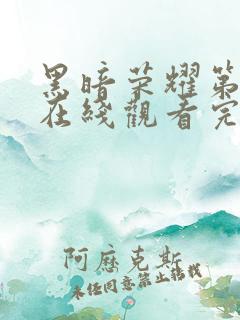 黑暗荣耀第
在线觀看完
阿歷克斯
未经同意禁止转载